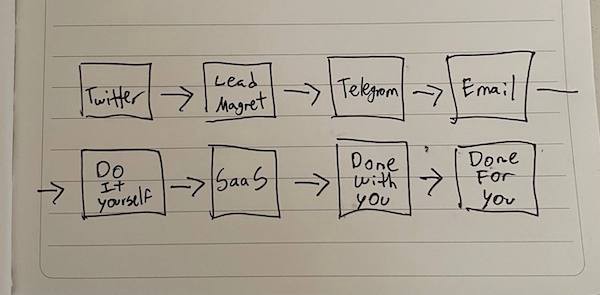 Twitter
Lead
Magnet
Telegram
Email
Do
It
yourself
SaaS
Done
with
you
Done
For
you